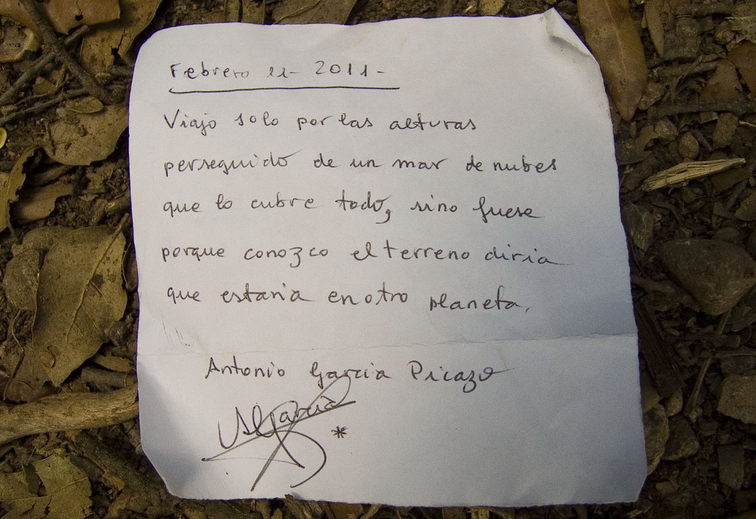 Febrero 11- 2011-
Viajo solo por las alturas
perseguido de un mar de nubes
que lo cubre todo, sino fuese
porque conozco el terreno diria
que estaria en otro planeta.
Antonio Garcia Picazo
AGarcia
*